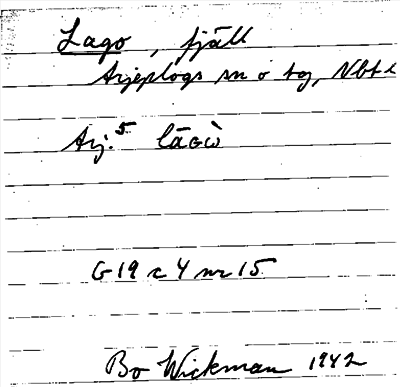 Lago, fjäll
Arjeplogs sn o tg, Nbt l
Arj.⁵ lāGò
G 19 c 4 nr 15
Bo Wickman 1942